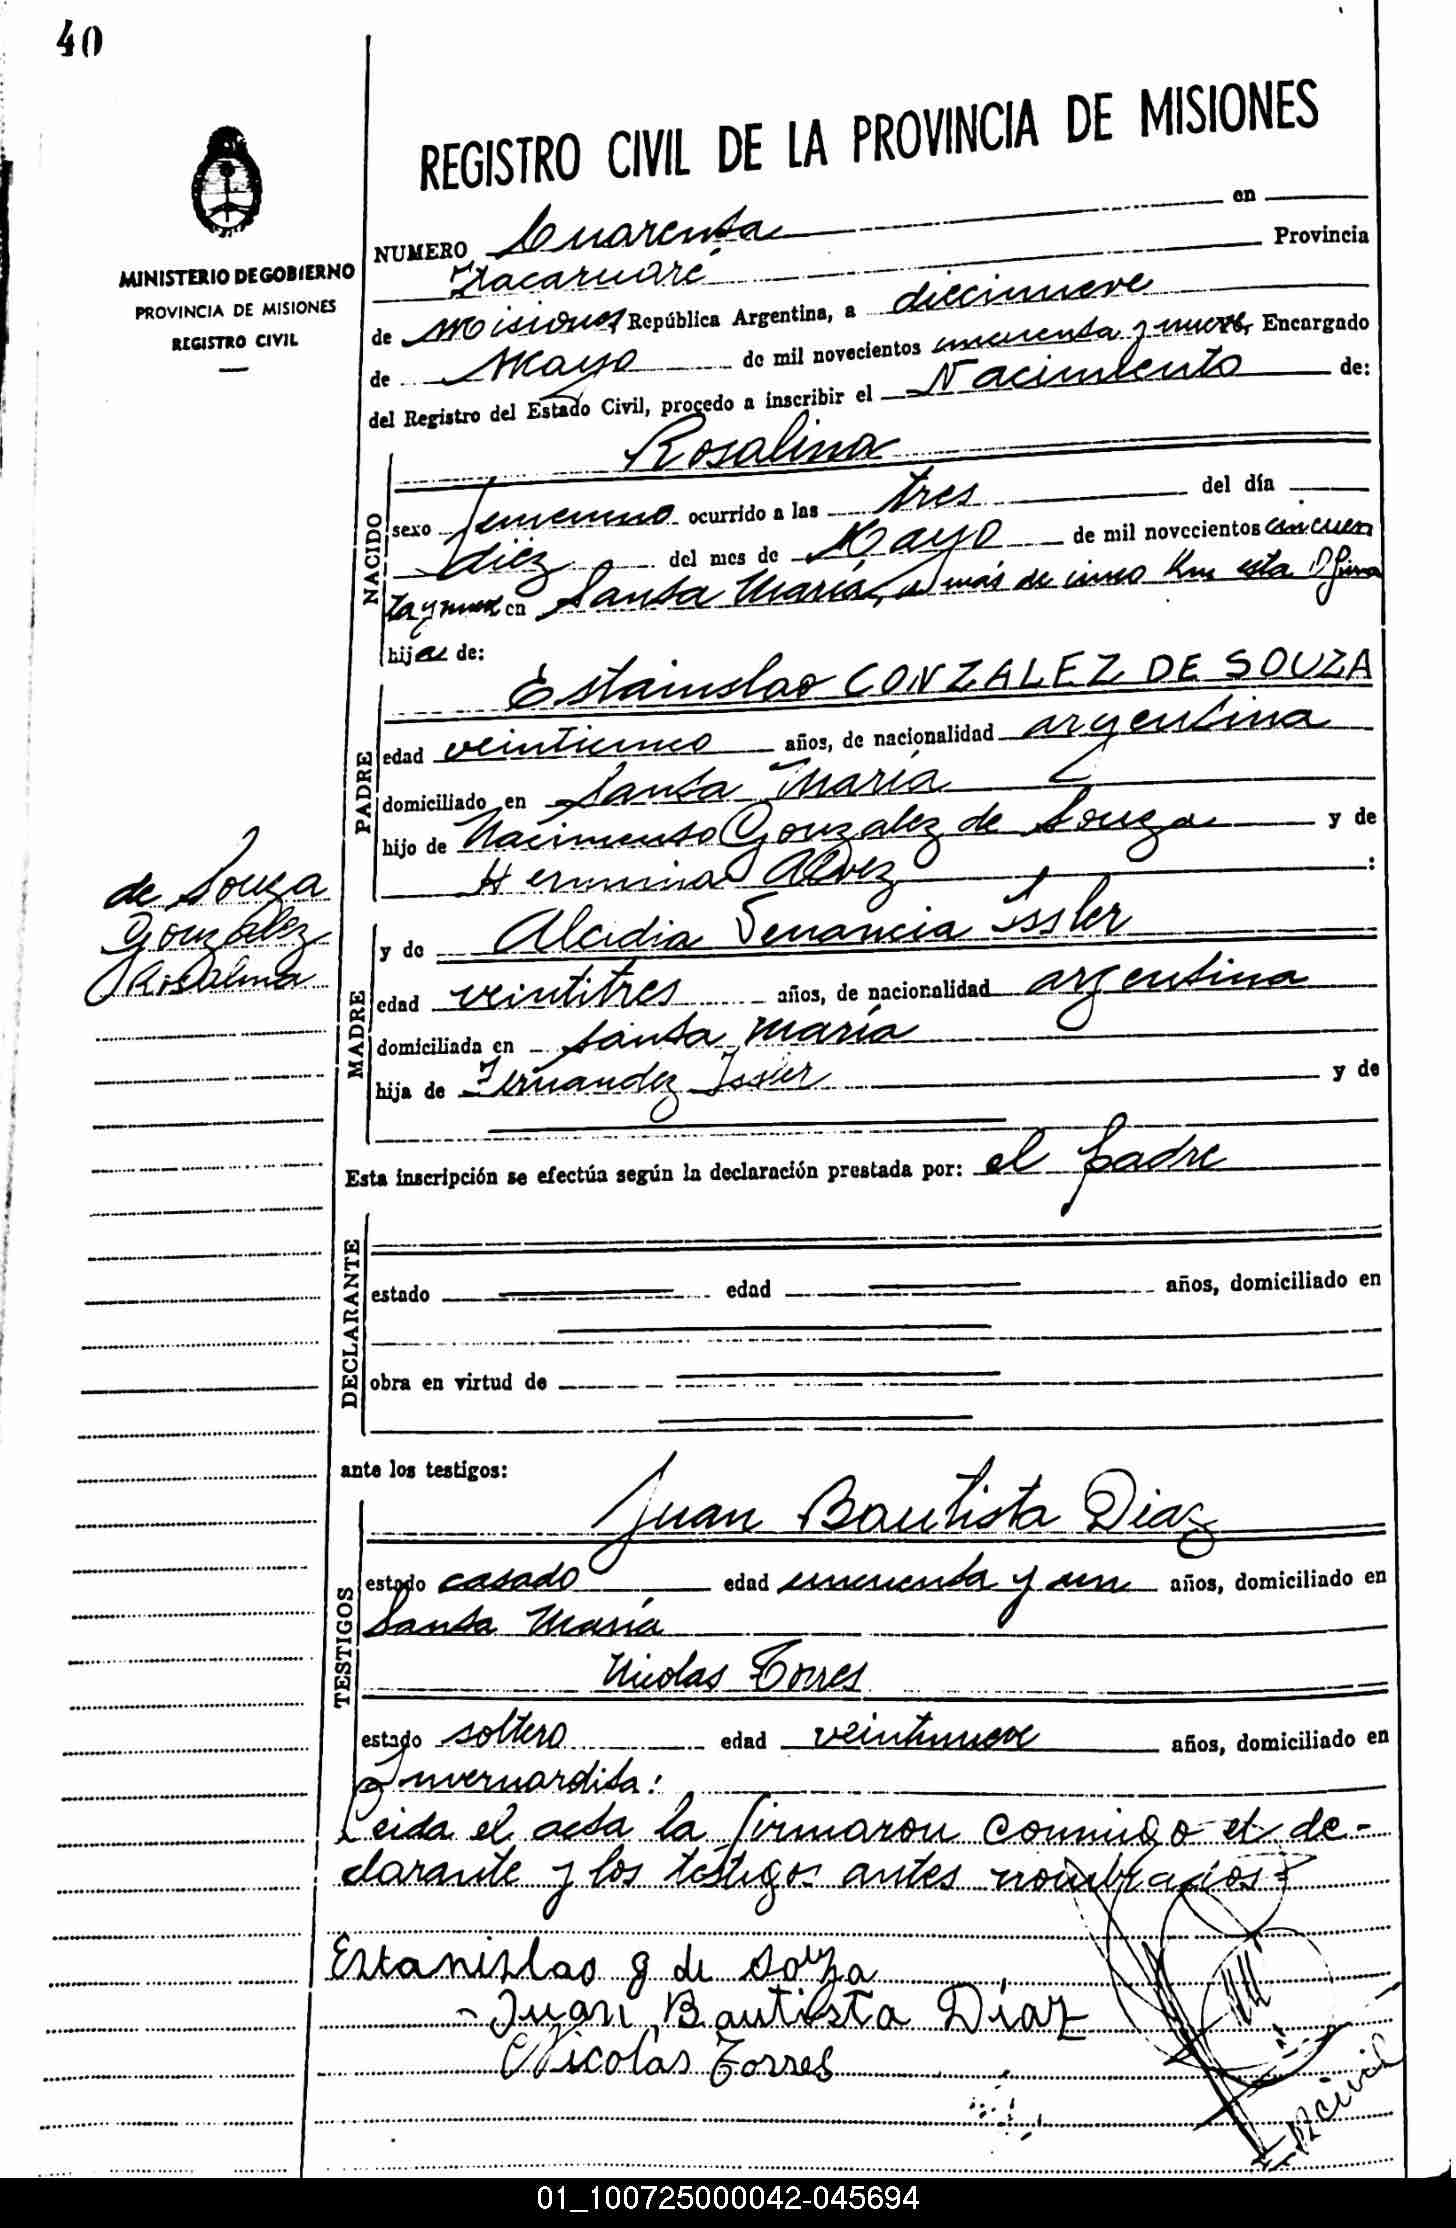 40
REGISTRO CIVIL DE LA PROVINCIA DE MISIONES
MINISTERIO DE GOBIERNO
PROVINCIA DE MISIONES
REGISTRO CIVIL
NUMERO Cuarenta en
Itacaruaré Provincia
de Misiones República Argentina, a diecinueve
de Mayo de mil novecientos cincuenta y nueve, Encargado
del Registro del Estado Civil, procedo a inscribir el Nacimiento de:
NACIDO
Rosalina
sexo femenino ocurrido a las tres del día
diez del mes de Mayo de mil novecientos cincuen
ta y nueve en Santa María, a más de cinco Km esta Oficina
hija de:
PADRE
Estanislao GONZALEZ DE SOUZA
edad veinticinco años, de nacionalidad argentina
domiciliado en Santa María
hijo de Nacimento Gonzalez de Souza y de
Herminia Alvez :
de Souza
Gonzalez
Rosalina
MADRE
y de Alcidia Venancia Issler
edad veintitres años, de nacionalidad argentina
domiciliada en Santa María
hija de Fernandez Issler y de
Esta inscripción se efectúa según la declaración prestada por: el padre
DECLARANTE
estado edad años, domiciliado en
obra en virtud de
ante los testigos:
TESTIGOS
Juan Bautista Diaz
estado casado edad cincuenta y un años, domiciliado en
Santa María
Nicolas Torres
estado soltero edad veintinueve años, domiciliado en
Invernardita:
Leida el acta la firmaron conmigo el de-
clarante y los testigos antes nombrados=
Estanislao g de souza
Juan Bautista Díaz
Nicolás Torres
01_100725000042-045694